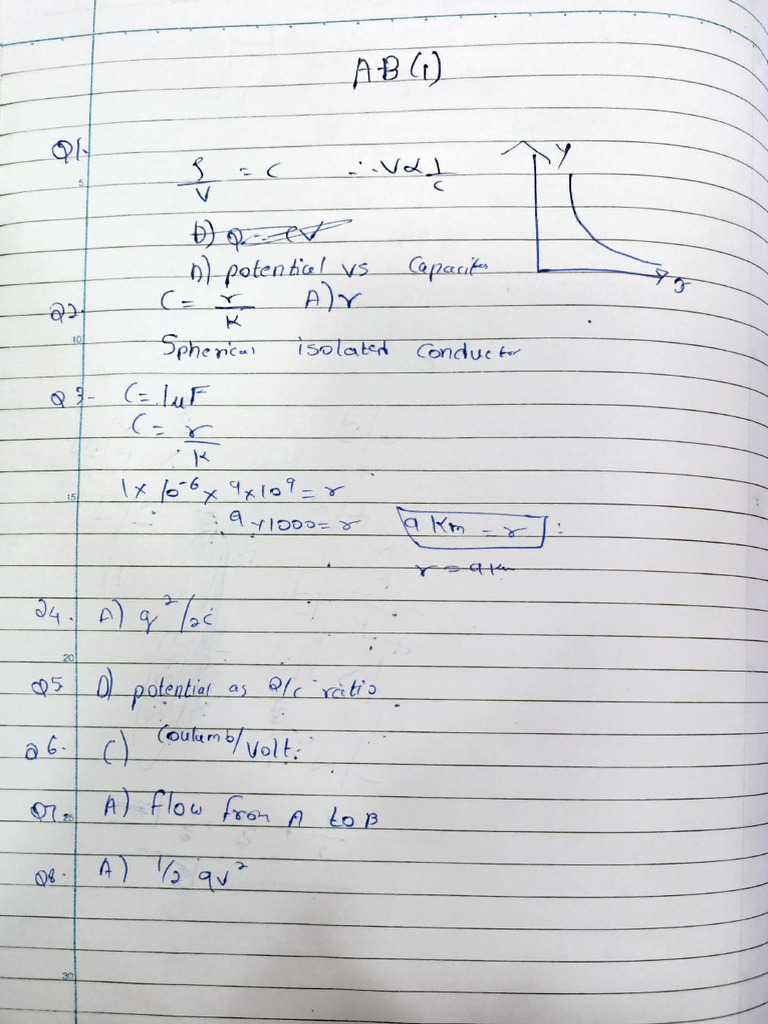 AB(1)
Q1.
Q/V = C ∴ V ∝ 1/C
y
x
D) Q = CV
A) potential vs Capacitor
Q2. C = r/K A) r
Spherical isolated conductor
Q3- C = 1μF
C = r/K
1 × 10⁻⁶ × 9 × 10⁹ = r
9 × 1000 = r 9 Km = r
r = 9 Km
Q4. A) q²/2c
Q5 D) potential as Q/c ratio
Q6. C) Coulamb/Volt.
Q7. A) Flow from A to B
Q8. A) 1/2 qv²
5
10
15
20
25
30